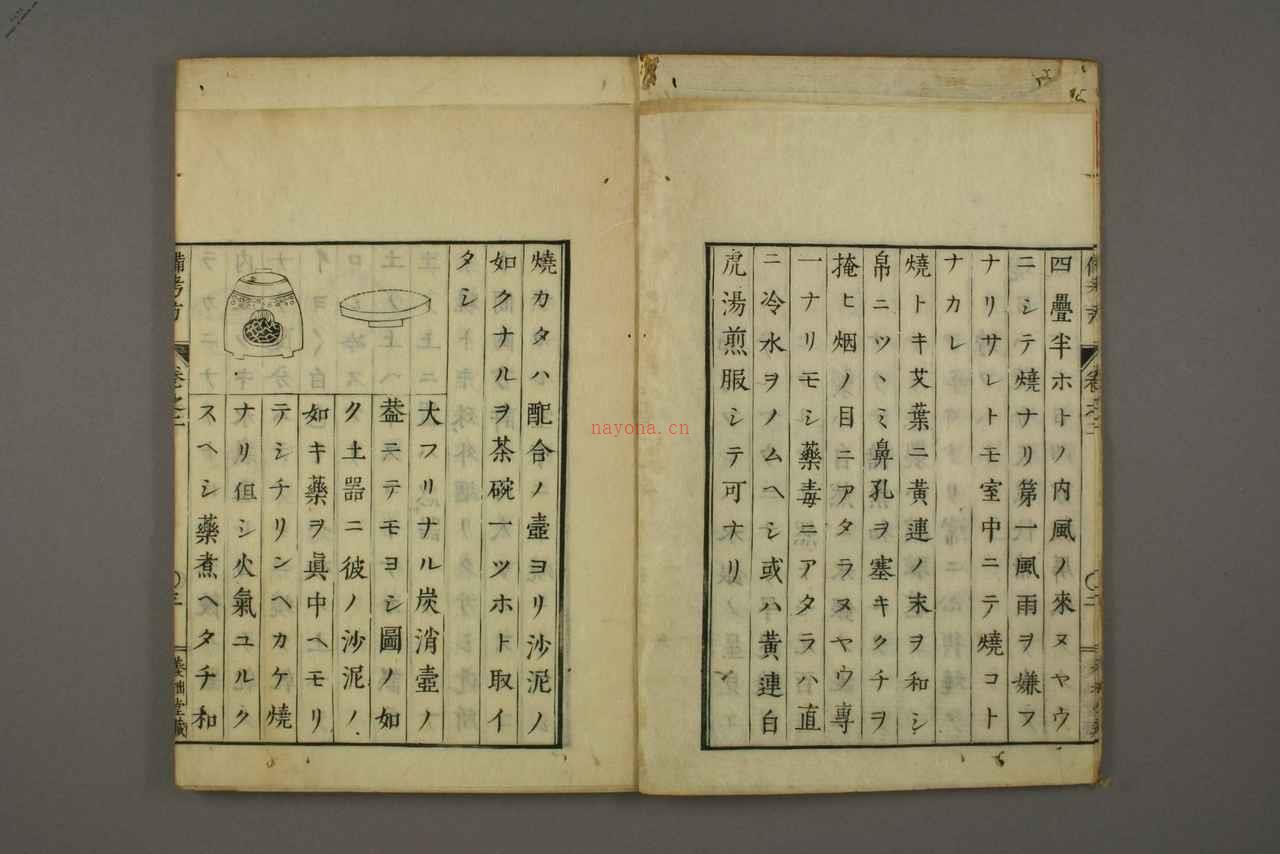 四疊半ホトノ内風ノ來ヌヤウ
ニシテ燒ナリ第一風雨ヲ嫌フ
ナリサレトモ室中ニテ燒コト
ナカレ
燒トキ艾葉ニ黄連ノ末ヲ和シ
帛ニツヽミ鼻孔ヲ塞キクチヲ
掩ヒ烟ノ目ニアタラヌヤウ專
一ナリモシ藥毒ニアタラハ直
ニ冷水ヲノムヘシ或ハ黄連白
虎湯煎服シテ可ナリ
燒カタハ配合ノ壷ヨリ沙泥ノ
如クナルヲ茶碗一ツホト取イ
タシ
大フリナル炭消壷ノ
葢ニテモヨシ圖ノ如
ク土器ニ彼ノ沙泥ノ
如キ藥ヲ眞中ヘモリ
テシチリンヘカケ燒
ナリ但シ火氣ユルク
スヘシ藥煮ヘタチ和
備考方
卷之二
〇三
nayona.cn